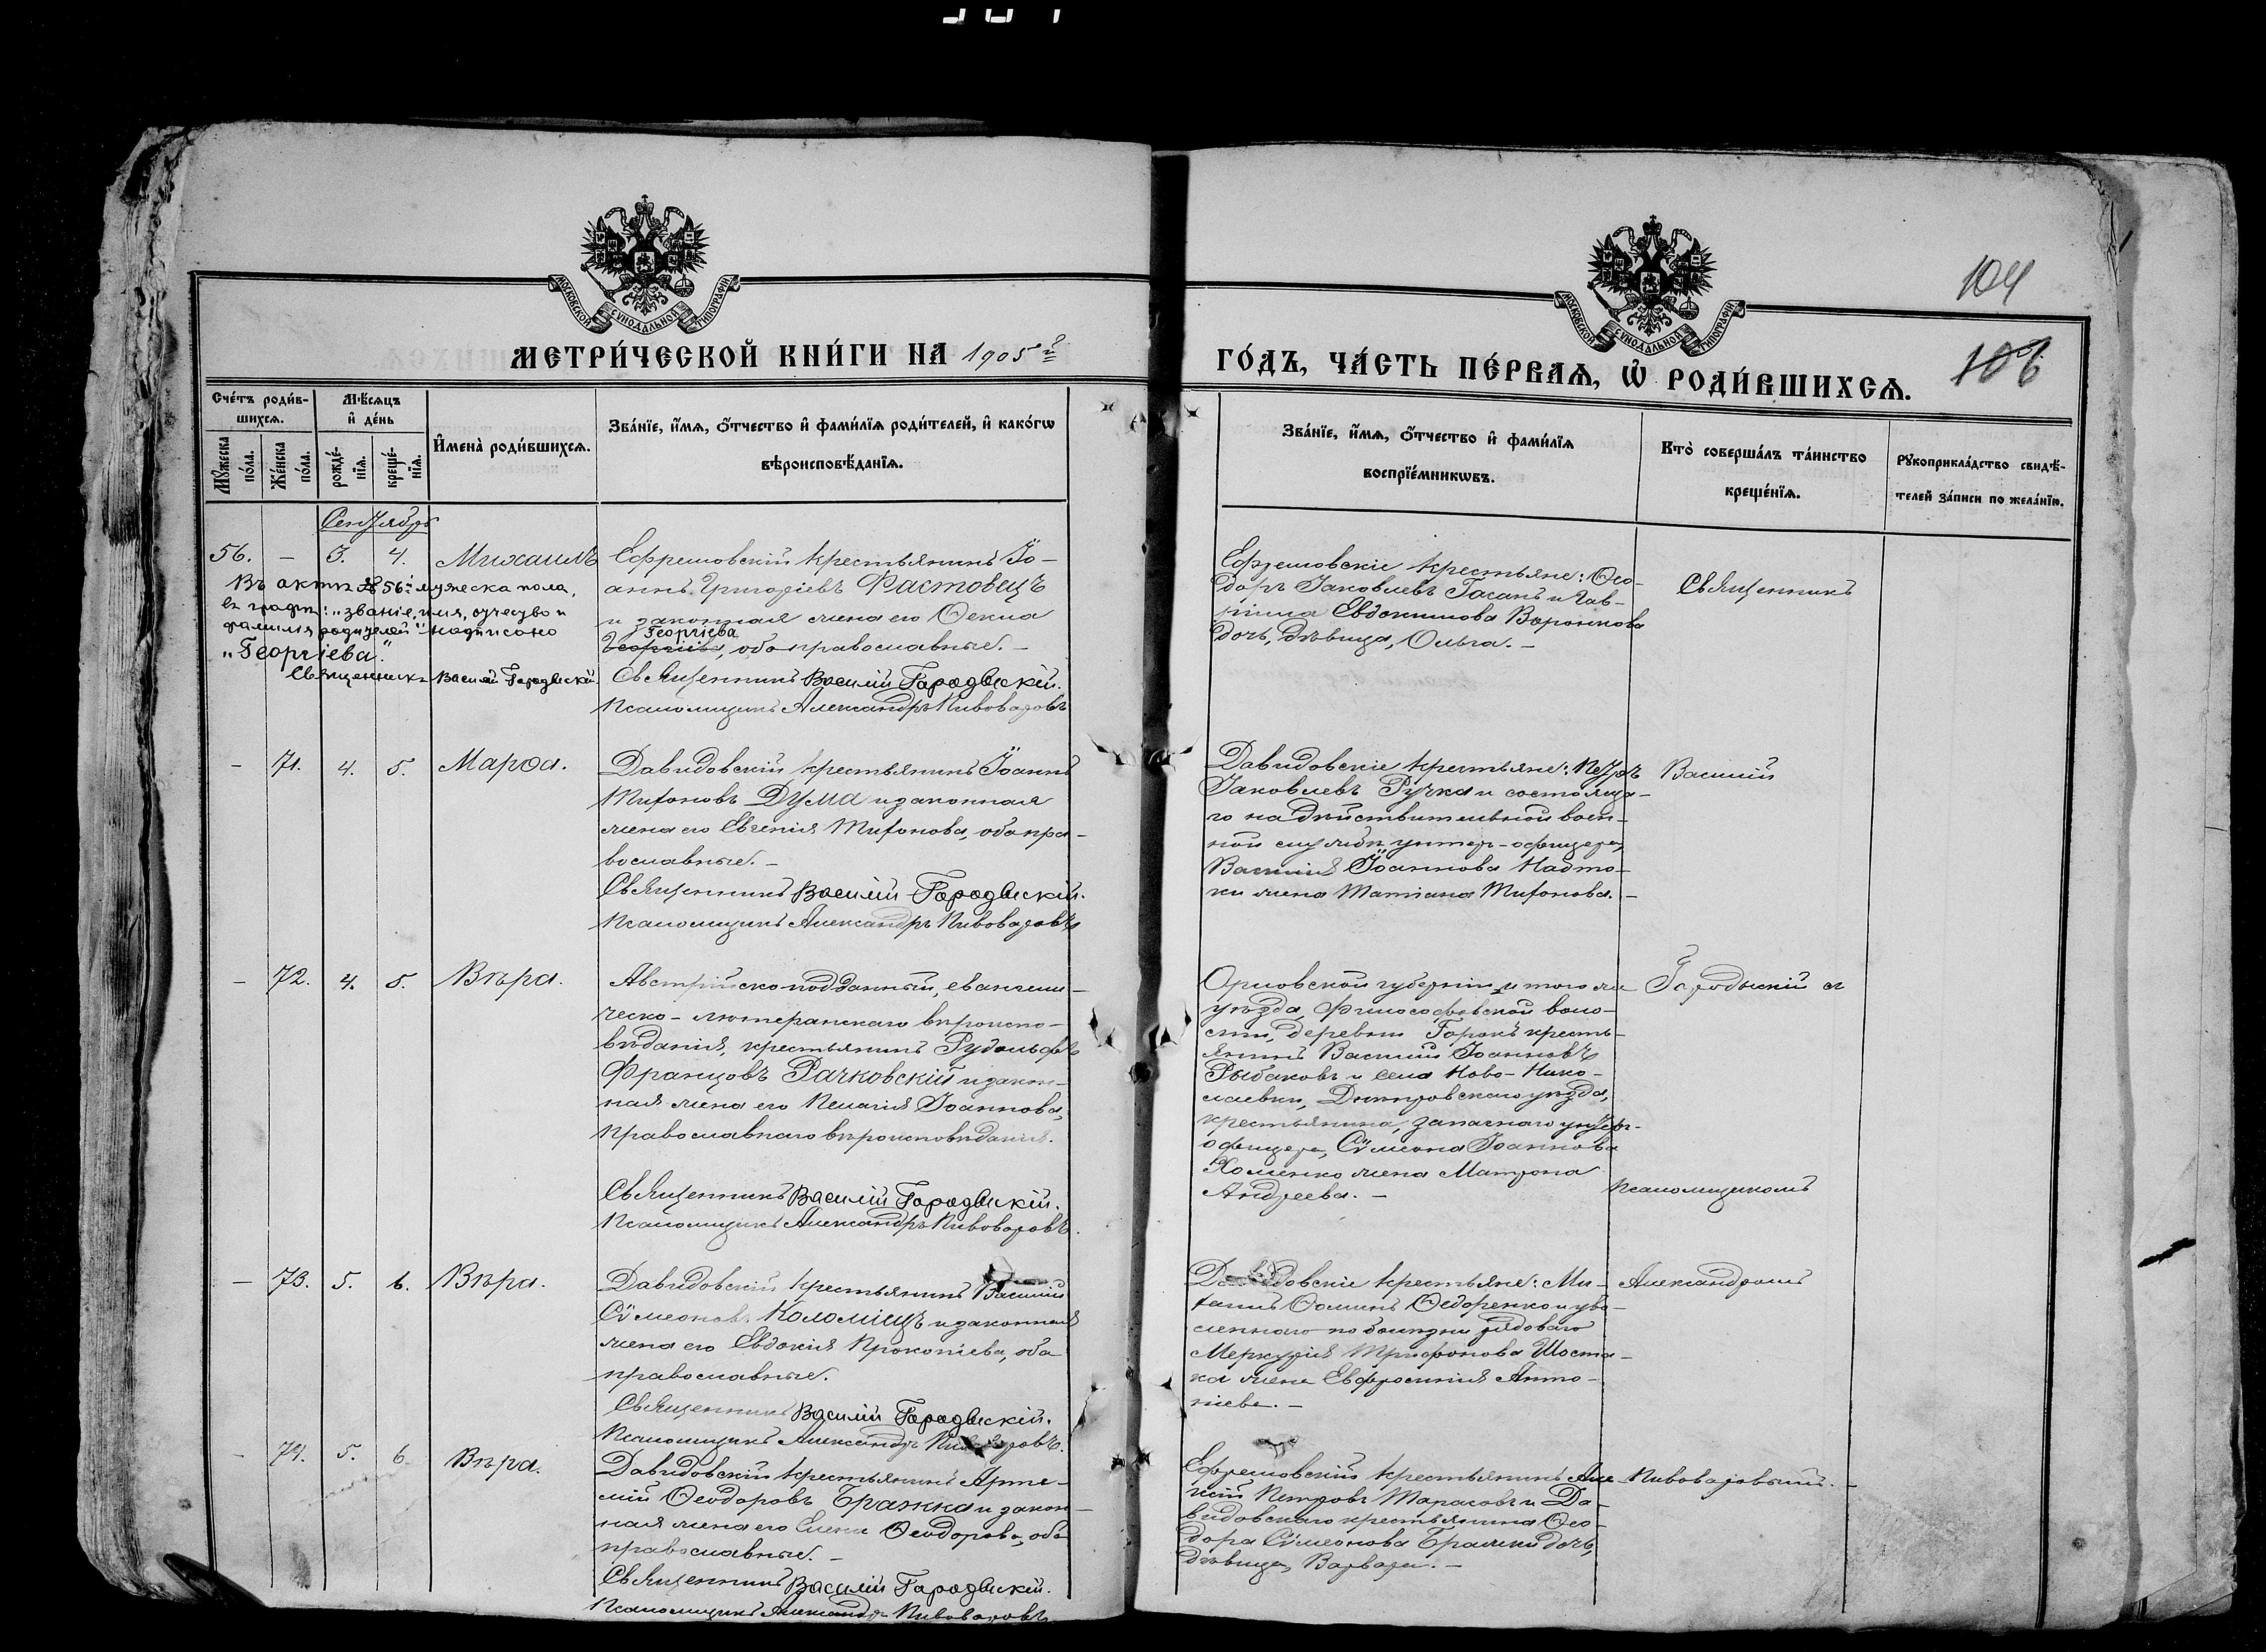 104
106
МОСКОВСКОЙ СѴНОДАЛЬНОЙ ТИПОГРАФІИ
МОСКОВСКОЙ СѴНОДАЛЬНОЙ ТИПОГРАФІИ
МЕТРИ́ЧЕСКОЙ КНИ́ГИ НА 1905 й
ГО́ДЪ, ЧА́СТЬ ПЕ́РВАѦ, Ѡ РОДИ́ВШИХСѦ.
Сче́тъ роди́в-
шихсѧ.
Мѣ́сѧцъ
и҆ де́нь
Мꙋ́жеска
по́ла.
Же́нска
по́ла.
рожде́-
нїѧ.
креще́-
нїѧ.
И҆мена̀ роди́вшихсѧ.
Зва́нїе, и҆́мѧ, ѻ҆́тчество и҆ фами́лїѧ роди́телей, и҆ како́гѡ
вѣроисповѣ́данїѧ.
Зва́нїе, и҆́мѧ, ѻ҆́тчество и҆ фами́лїѧ
воспрїе́мникѡвъ.
Кто̀ соверша́лъ та́инство
креще́нїѧ.
Рꙋкоприкла́дство свидѣ́-
телей за́писи по жела́нїю.
Сентябрь
56. – 3. 4. Михаилъ
Въ актѣ № 56 мужеска пола,
въ графѣ: „званіе, имя, отчество и
фамилія родителей" надписано
„Георгіева".
Священникъ Василій Городыскій.
Ефремовскій крестьянинъ Іо-
аннъ Григоріевъ Фастовецъ
и законная жена его Ѳекла
Георгіева
Георгіева, оба православные. –
Священникъ Василій Городыскій.
Псаломщикъ Александръ Пивоваровъ
Ефремовскіе крестьяне: Ѳео-
доръ Іаковлевъ Гасанъ и Гав-
ріила Евдокимова Воронкова
дочь, дѣвица, Ольга. –
Священникъ
– 71. 4. 5. Марѳа.
Давидовскій крестьянинъ Іоаннъ
Тихоновъ Дума и законная
жена его Евгенія Тихонова, оба пра-
вославные. –
Священникъ Василій Городыскій.
Псаломщикъ Александръ Пивоваровъ
Давидовскіе крестьяне: Петръ
Іаковлевъ Ручка и состояща-
го на дѣйствительной воен-
ной службѣ унтеръ-офицера,
Василія Іоаннова Надто-
ки жена Татіана Тихонова. –
Василій
– 72. 4. 5. Вѣра.
Австрійско-подданный, евангели-
ческо-лютеранскаго вѣроиспо-
вѣданія, крестьянинъ Рудольфъ
Францовъ Рачковскій и закон-
ная жена его Пелагія Іоаннова,
православнаго вѣроисповѣданія.
Священникъ Василій Городыскій.
Псаломщикъ Александръ Пивоваровъ.
Орловской губерніи и того же
уѣзда, Философовской воло-
сти, деревни Горокъ кресть-
янинъ Василій Іоанновъ
Рыбаковъ и села Ново-Нико-
лаевки, Днѣпровскаго уѣзда,
крестьянина, запаснаго унтеръ-
офицера, Сѵмеона Іоаннова
Хоменко жена Матрона
Андреева. –
Городыскій съ
Псаломщикомъ
– 73. 5. 6. Вѣра.
Давидовскій крестьянинъ Василій
Сѵмеоновъ Коломіецъ и законная
жена его Евдокія Прокопіева, оба
православные.
Священникъ Василій Городыскій.
Псаломщикъ Александръ Пивоваровъ.
Давидовскіе крестьяне: Ми-
хаилъ Ѳоминъ Ѳедоренко и уво-
леннаго по болѣзни рядоваго
Меркурія Трифонова Шоста-
ка жена Евфросинія Анто-
ніева. –
Александромъ
– 74. 5. 6. Вѣра.
Давидовскій крестьянинъ Арте-
мій Ѳеодоровъ Бражка и закон-
ная жена его Елена Ѳеодорова, оба
православные. –
Священникъ Василій Городыскій.
Псаломщикъ Александръ Пивоваровъ
Ефремовскій крестьянинъ Але-
ксій Петровъ Тарасовъ и Да-
видовскаго крестьянина Ѳео-
дора Сѵмеонова Бражки дочь,
дѣвица, Варвара. –
Пивоваровымъ. –